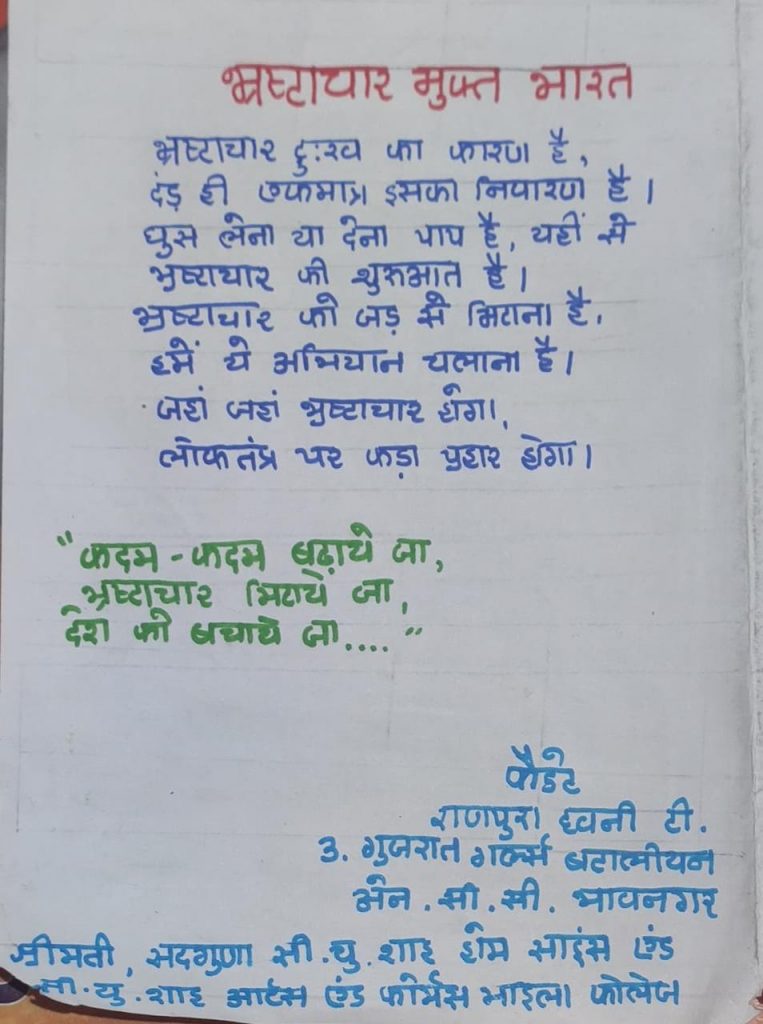 भ्रष्टाचार मुक्त भारत
भ्रष्टाचार दुःख का कारण है,
दंड़ ही एकमात्र इसका निवारण है।
घुस लेना या देना पाप है, यहीं से
भ्रष्टाचार की शुरुआत है।
भ्रष्टाचार को जड़ से मिटाना है,
हमें ये अभियान चलाना है।
जहां जहां भ्रष्टाचार होगा,
लोकतंत्र पर कड़ा प्रहार होगा।
"कदम - कदम बढ़ाये जा,
भ्रष्टाचार मिटाये जा,
देश को बचाये जा...."
कैडेट
राणपुरा ध्वनी टी.
3. गुजरात गर्ल्स बटालीयन
अेन . सी . सी . भावनगर
श्रीमती, सदगुणा सी . यु . शाह होम साइंस एंड
सी . यु . शाह आर्टस एंड कोर्मस माहला कोलेज